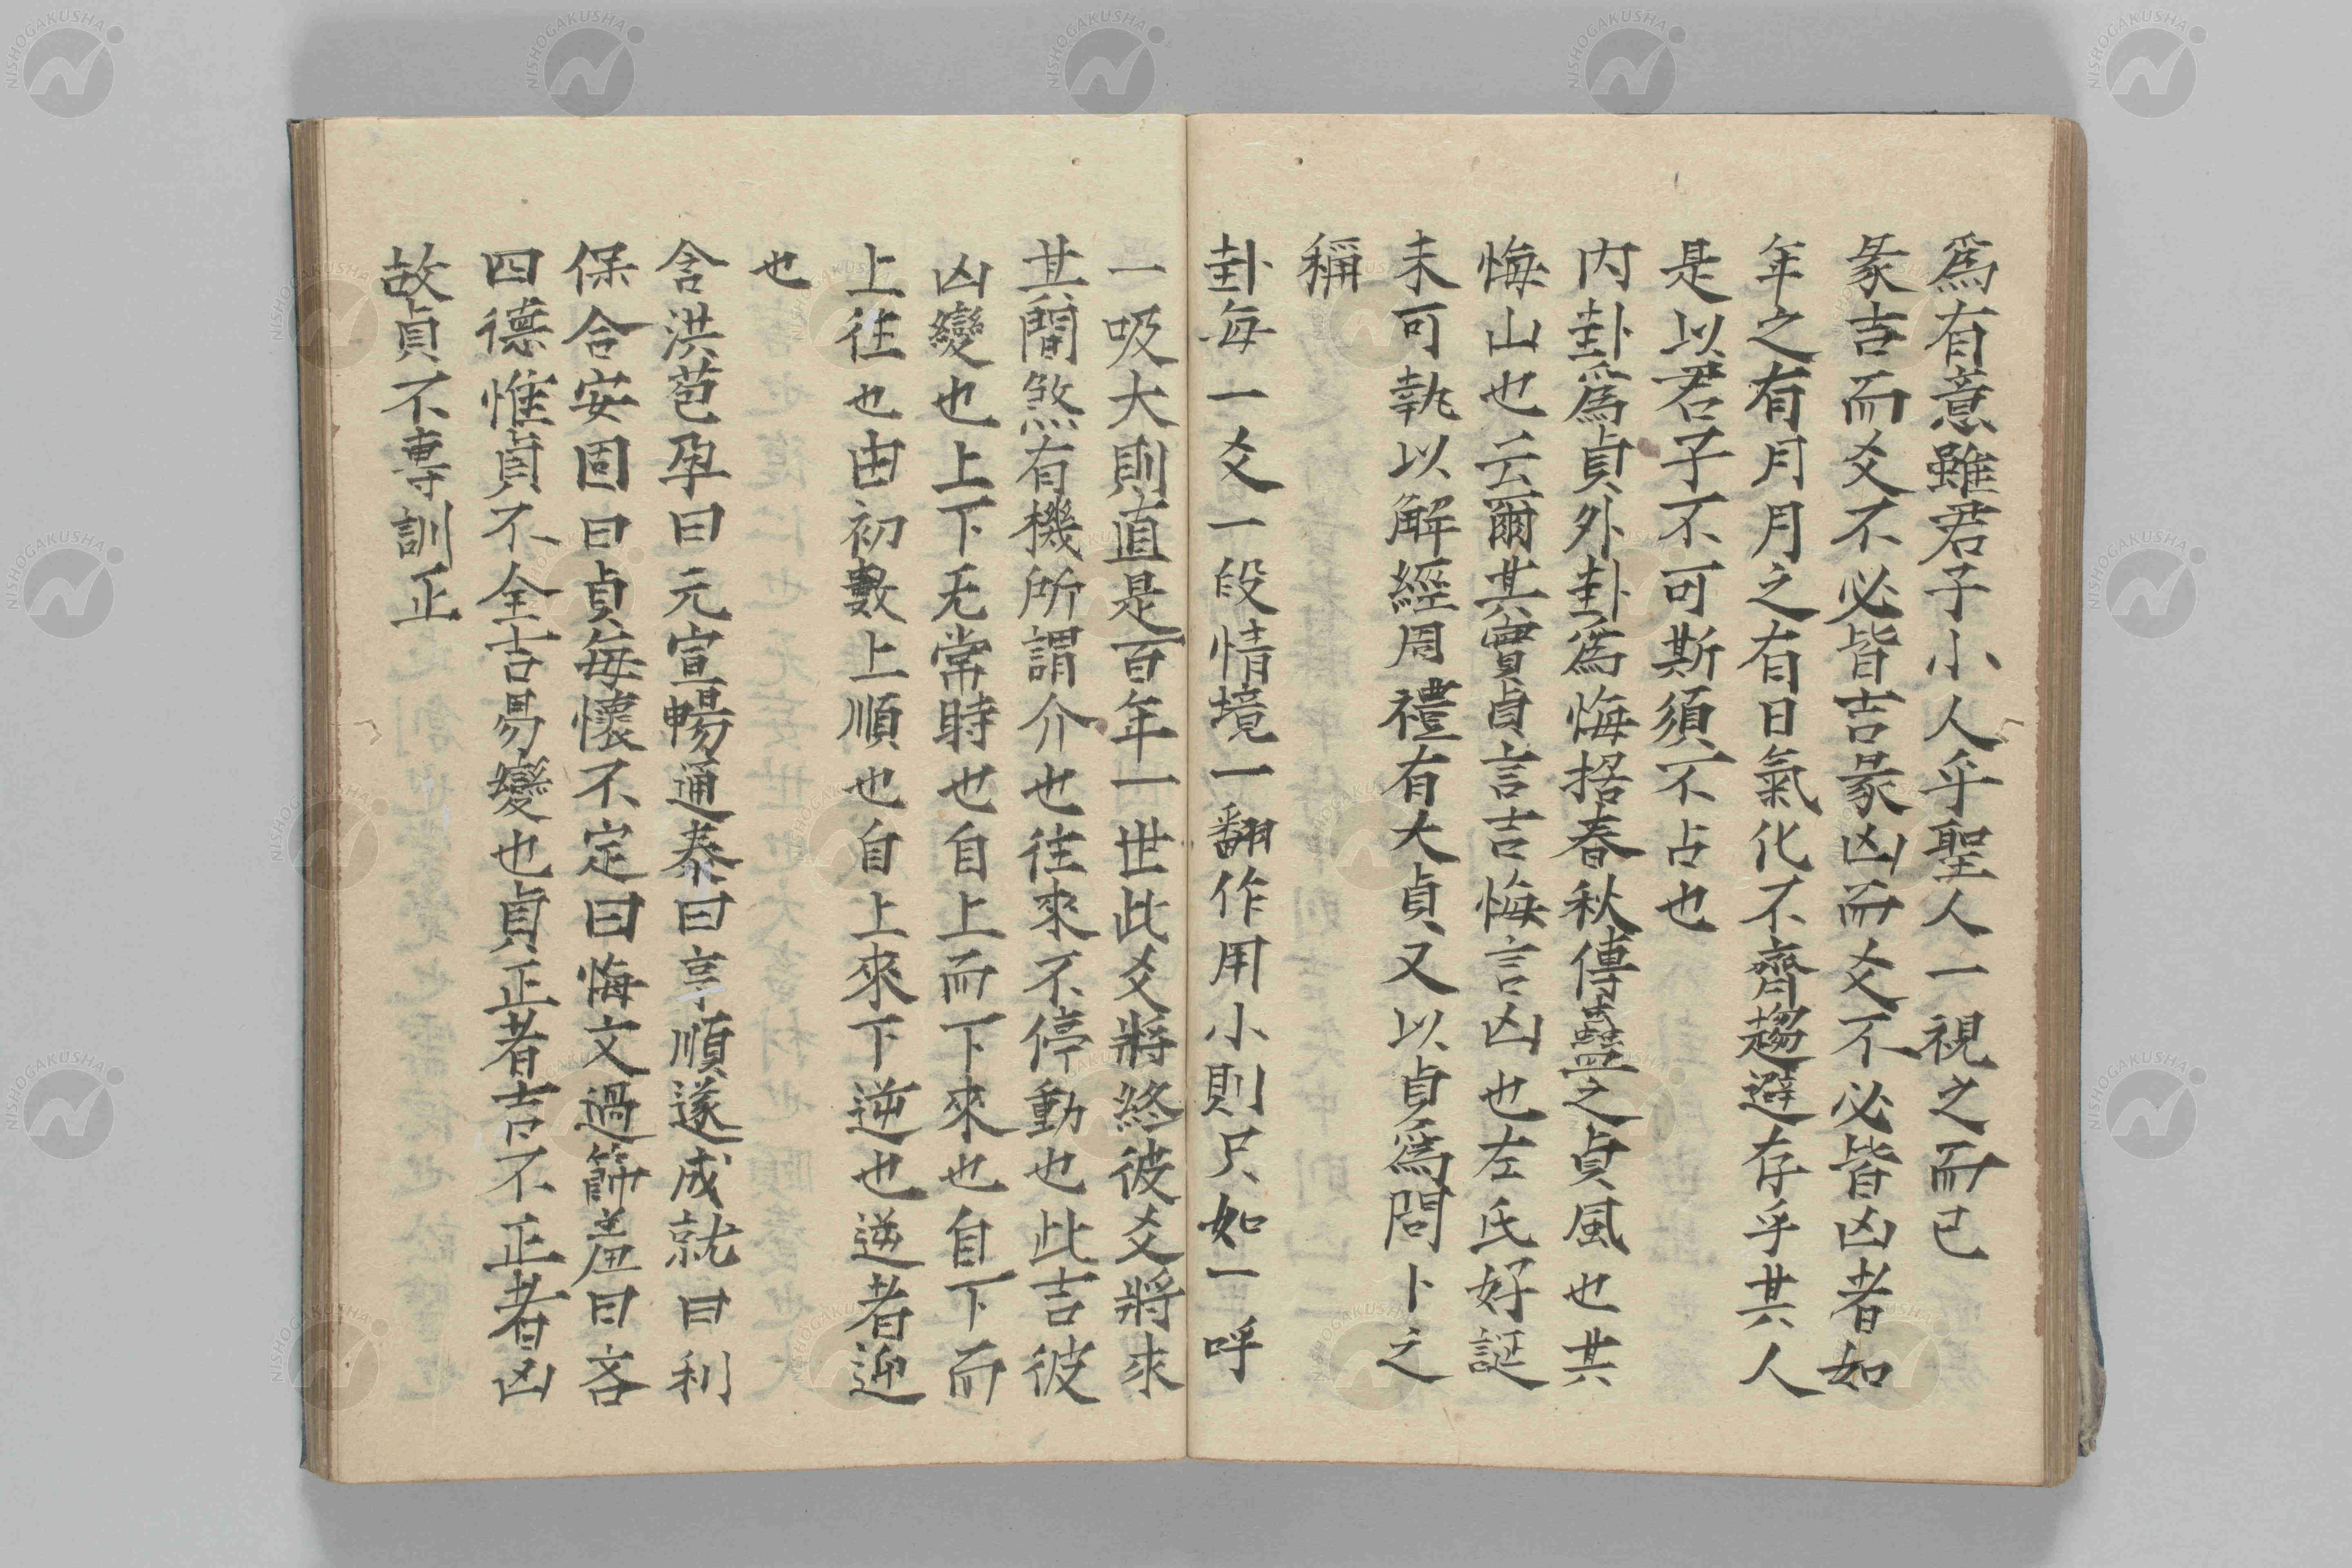 爲有意雖君子小人乎聖人一視之而已
彖吉而爻不必皆吉彖凶而爻不必皆凶者如
年之有月月之有日氣化不齊趨避存乎其人
是以君子不可斯須不占也
内卦爲貞外卦爲悔據春秋傳蠱之貞風也其
悔山也云爾其實貞言吉悔言凶也左氏好誕
未可執以解經周禮有大貞又以貞爲問卜之
稱
卦每一爻一段情境一翻作用小則只如一呼
一吸大則直是百年一世此爻將終彼爻將來
其間煞有機所謂介也往來不停動也此吉彼
凶變也上下无常時也自上而下來也自下而
上往也由初數上順也自上來下逆也逆者迎
也
含洪苞孕曰元宣暢通泰曰享順遂成就曰利
保合安固曰貞每懷不定曰悔文過飾羞曰吝
四德惟貞不全吉易變也貞正者吉不正者凶
故貞不專訓正
NISHOGAKUSHA